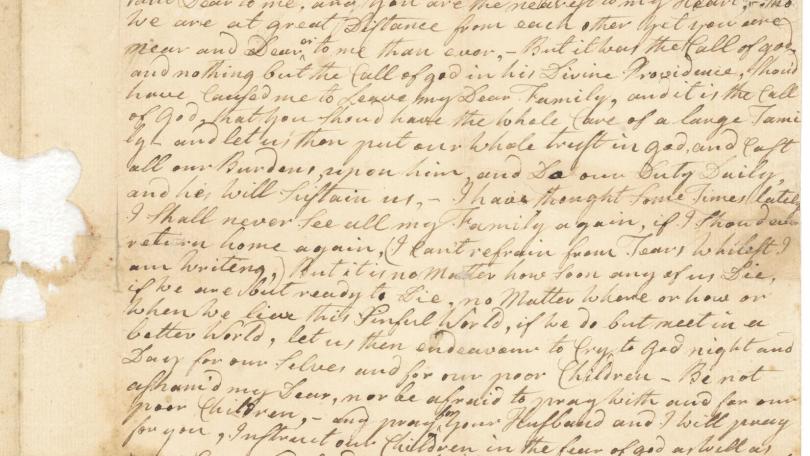 and Dear to me, and you are the nearest to my Heart,
we are at great Distance from each other yet you are
near and Dear or to me than ever, – But it was the Call of god
and nothing but the Call of god in his Divine Providence, Should
have Caused me to Leave my Dear Family, and it is the Call
of God, that you Shoud have the whole Care of a large Fami
ly – and let us then put our whole trust in god, and Cast
all our Burdens, upon him, and Do our Duty Daily,
and he, will Sustain us, – I have thought Some Times lately
I Shall never See all my Family again, if I Shoud ever
return home again, (I Can't refrain from Tears whilst I
am writeng,) But it is no Matter how Soon any of us Die,
if we are but ready to Die, no Matter where or how or
when we lieve this Sinful World, if we do but meet in a
better World, let us then endeavour to Cry to God night and
Day for our Selves and for our poor Children – Be not
asham'd my Dear, nor be afraid to pray with and for our
poor Children, – and pray for your Husband and I will pray
for you, Instruct our Children in the fear of god as well as